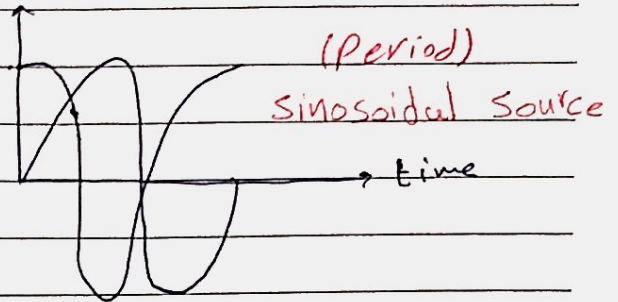 (Period)
Sinosoidal Source
time